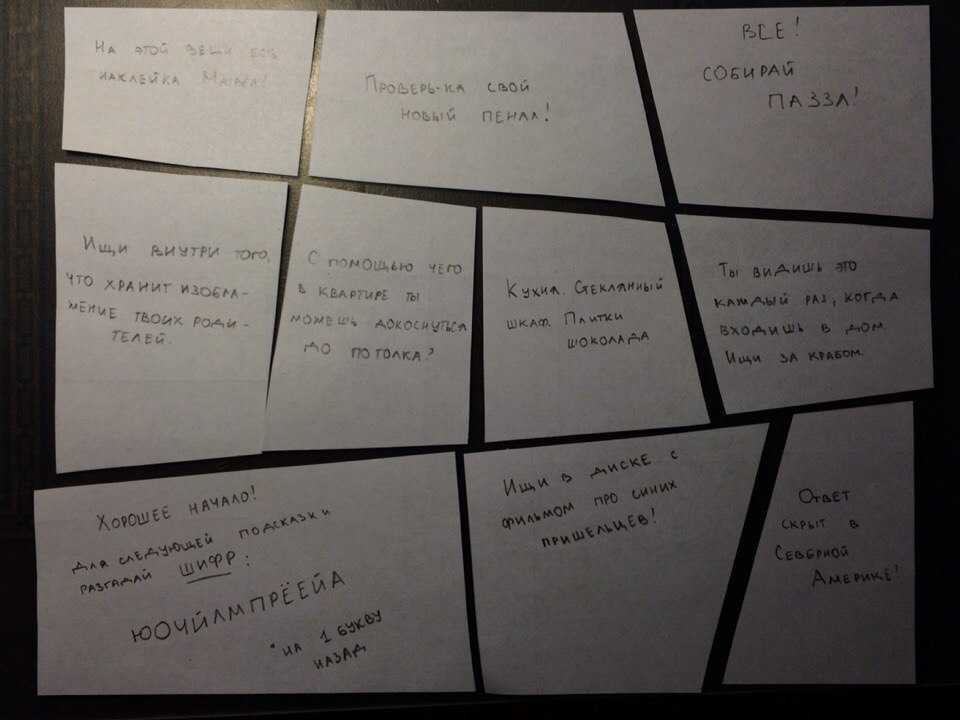 На этой вещи есть
наклейка
Проверь-ка свой
новый пенал!
Все!
Собирай
паззл!
Ищи внутри того,
что хранит изобра-
жение твоих роди-
телей.
С помощью чего
в квартире ты
можешь докоснуться
до потолка?
Кухня. Стеклянный
шкаф. Плитки
шоколада
Ты видишь это
каждый раз, когда
входишь в дом.
Ищи за крабом.
Хорошее начало!
Для следующей подсказки
разгадай шифр:
ЮОЧЙЛМПРЁЕЙА
* на 1 букву
назад
Ищи в диске с
фильмом про синих
пришельцев!
Ответ
скрыт в
Северной
Америке!